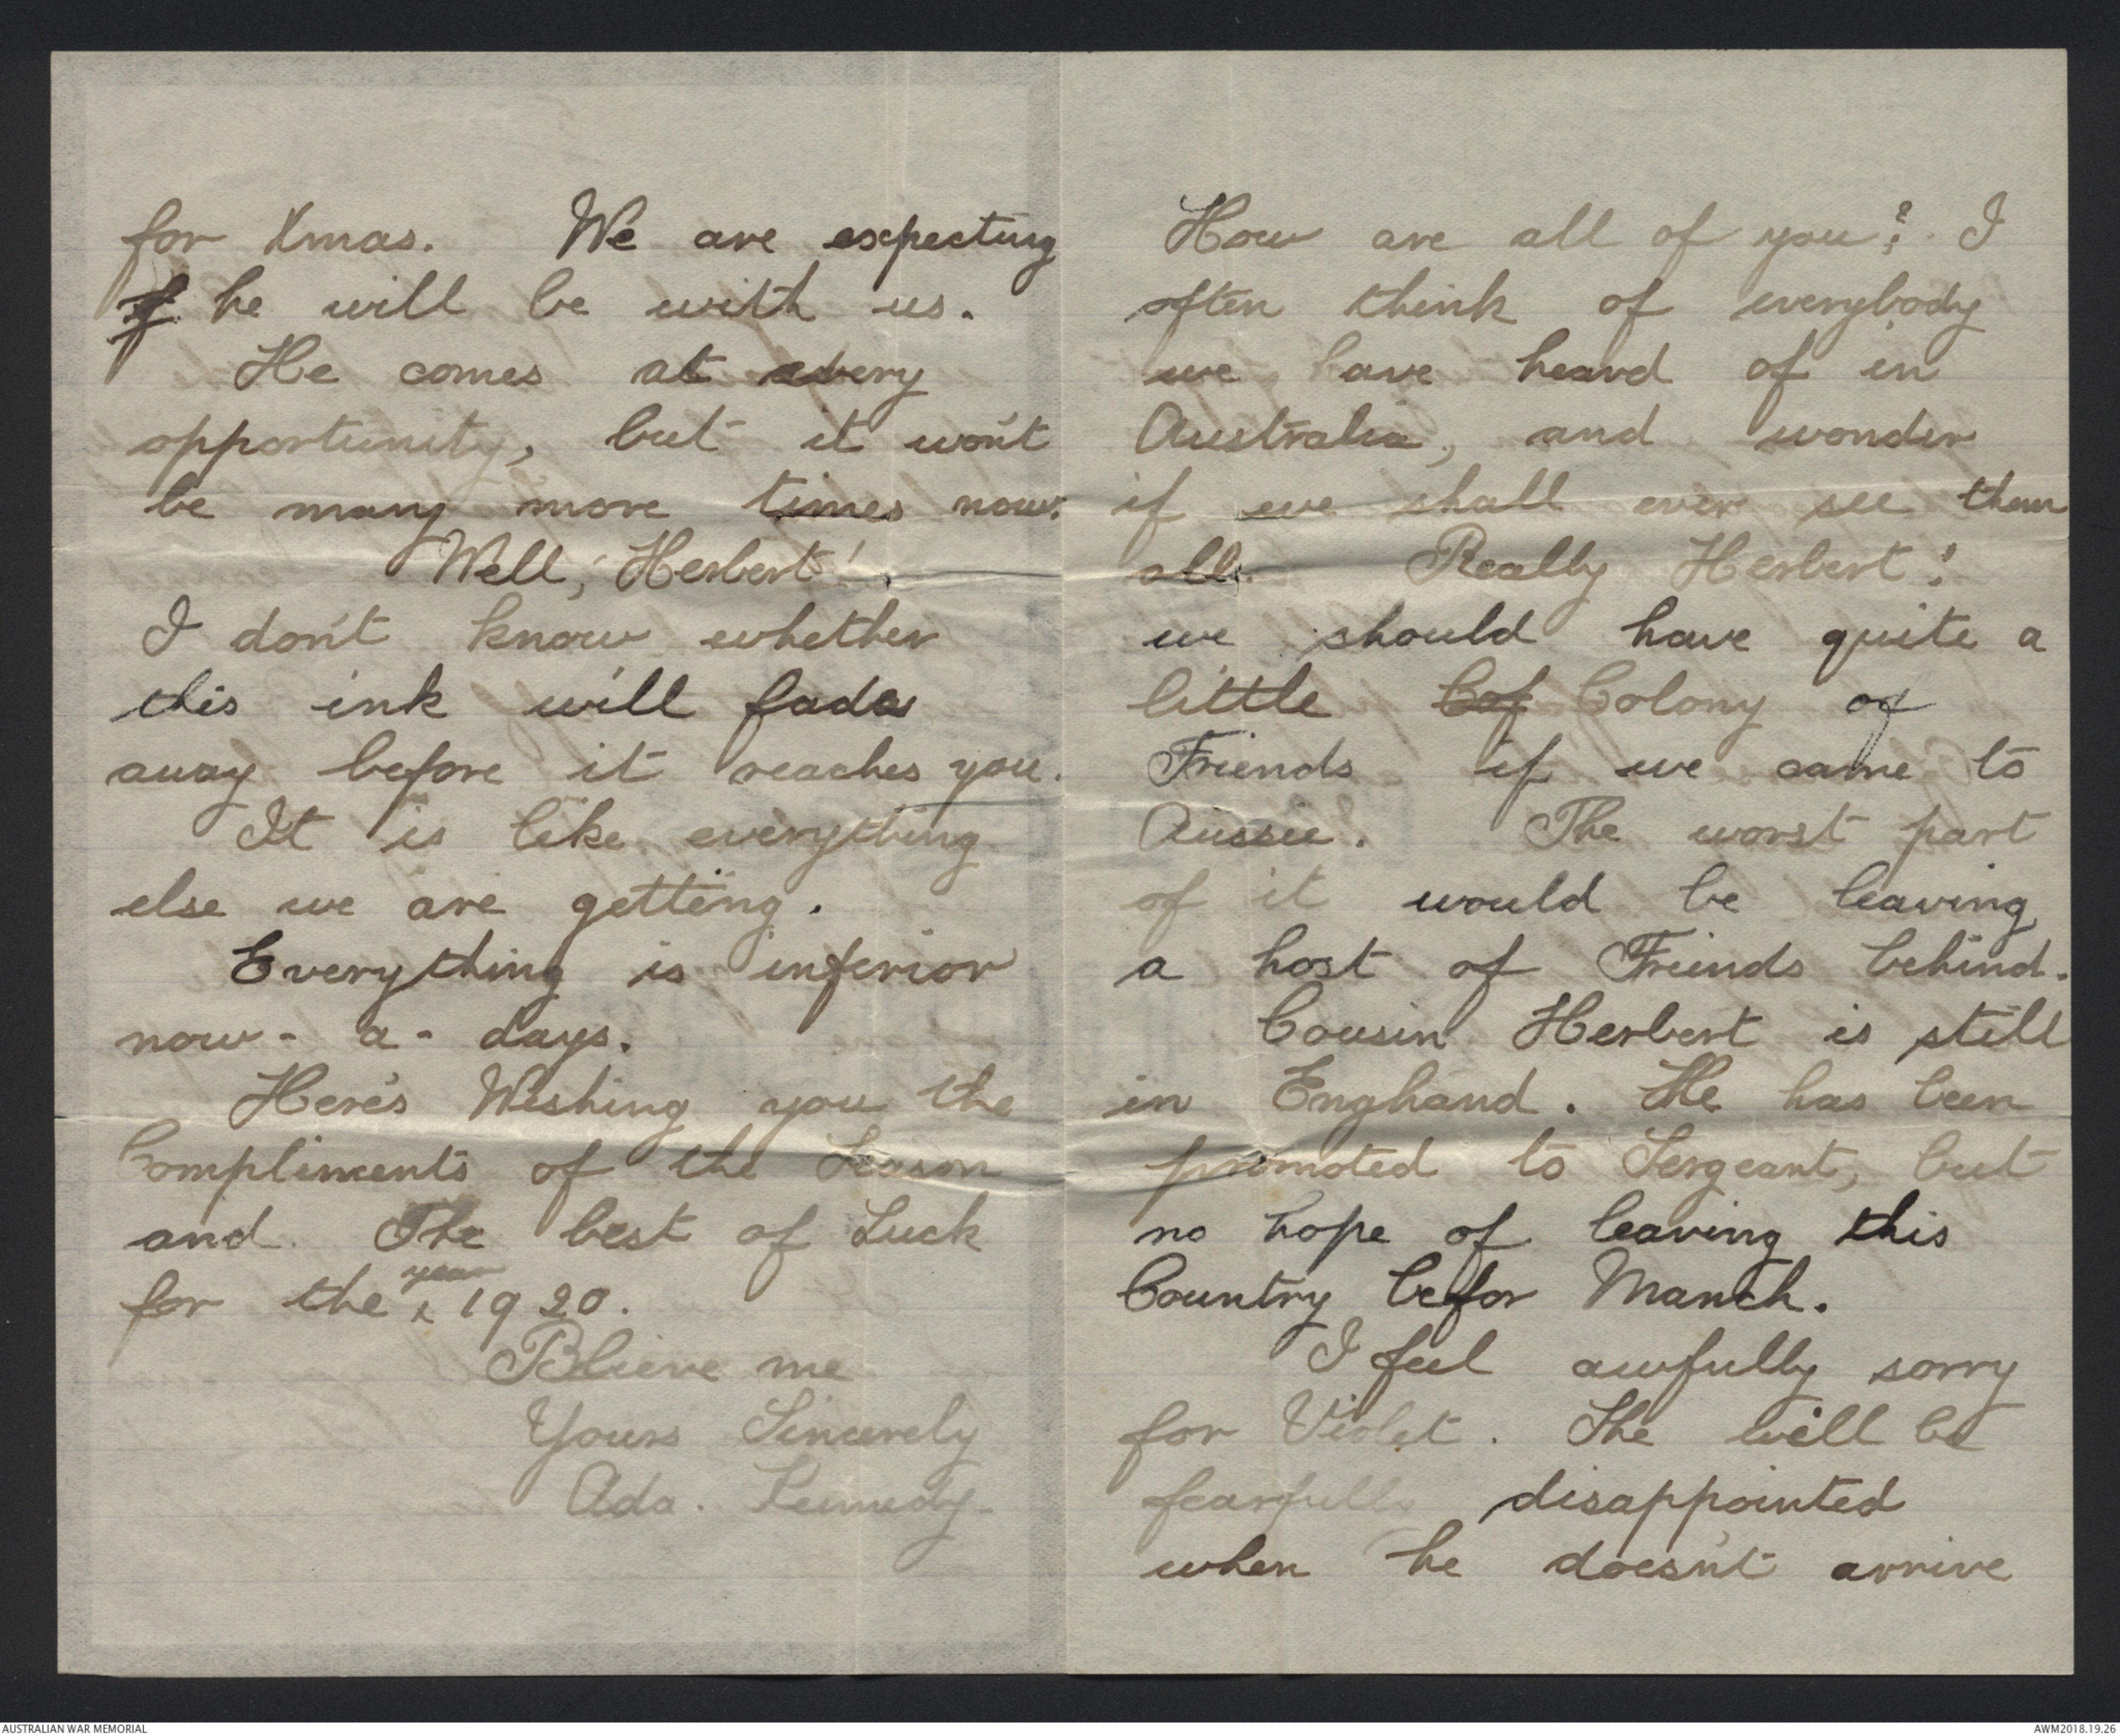 How are all of you? I
often think of everybody
we have heard of in
Australia, and wonder
if we shall ever see them
all. Really Herbert!
we should have quite a
little Cof Colony of
Friends if we came to
Aussie. The worst part
of it would be leaving
a host of Friends behind.
Cousin Herbert is still
in Enghand. He has been
promoted to Sergeant, but
no hope of leaving this
Country befor March.
I feel awfully sorry
for Violet. She will be
fearfully disappointed
when he doesn't arrive
for Xmas. We are expecting
he will be with us.
He comes at every
opportunity, but it won't
be many more times now.
Well, Herbert!
I don't know whether
this ink will fade
away before it reaches you.
It is like everything
else we are getting.
Everything is inferior
now-a-days.
Here's Wishing you the
Compliments of the Season
and The best of Luck
for the year 1920.
Blieve me
Yours Sincerely
Ada. Kennedy
AUSTRALIAN WAR MEMORIAL
AWM2018.19.26